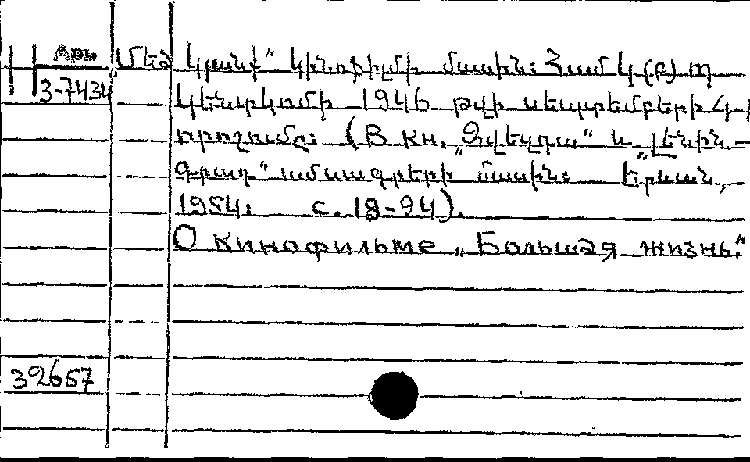 Арм
3-7434
Մեծ կյանք" կինոֆիլմի մասին: Համ Կ(բ)Պ
Կենտկոմի 1946 թվի սեպտեմբերի 4-ի
որոշումը: (В кн. „Զվեզդա" և „Լենին-
գրադ" ամսագրերի մասին: Երևան,
1954: с. 18-94).
О кинофильме „Большая жизнь."
39657